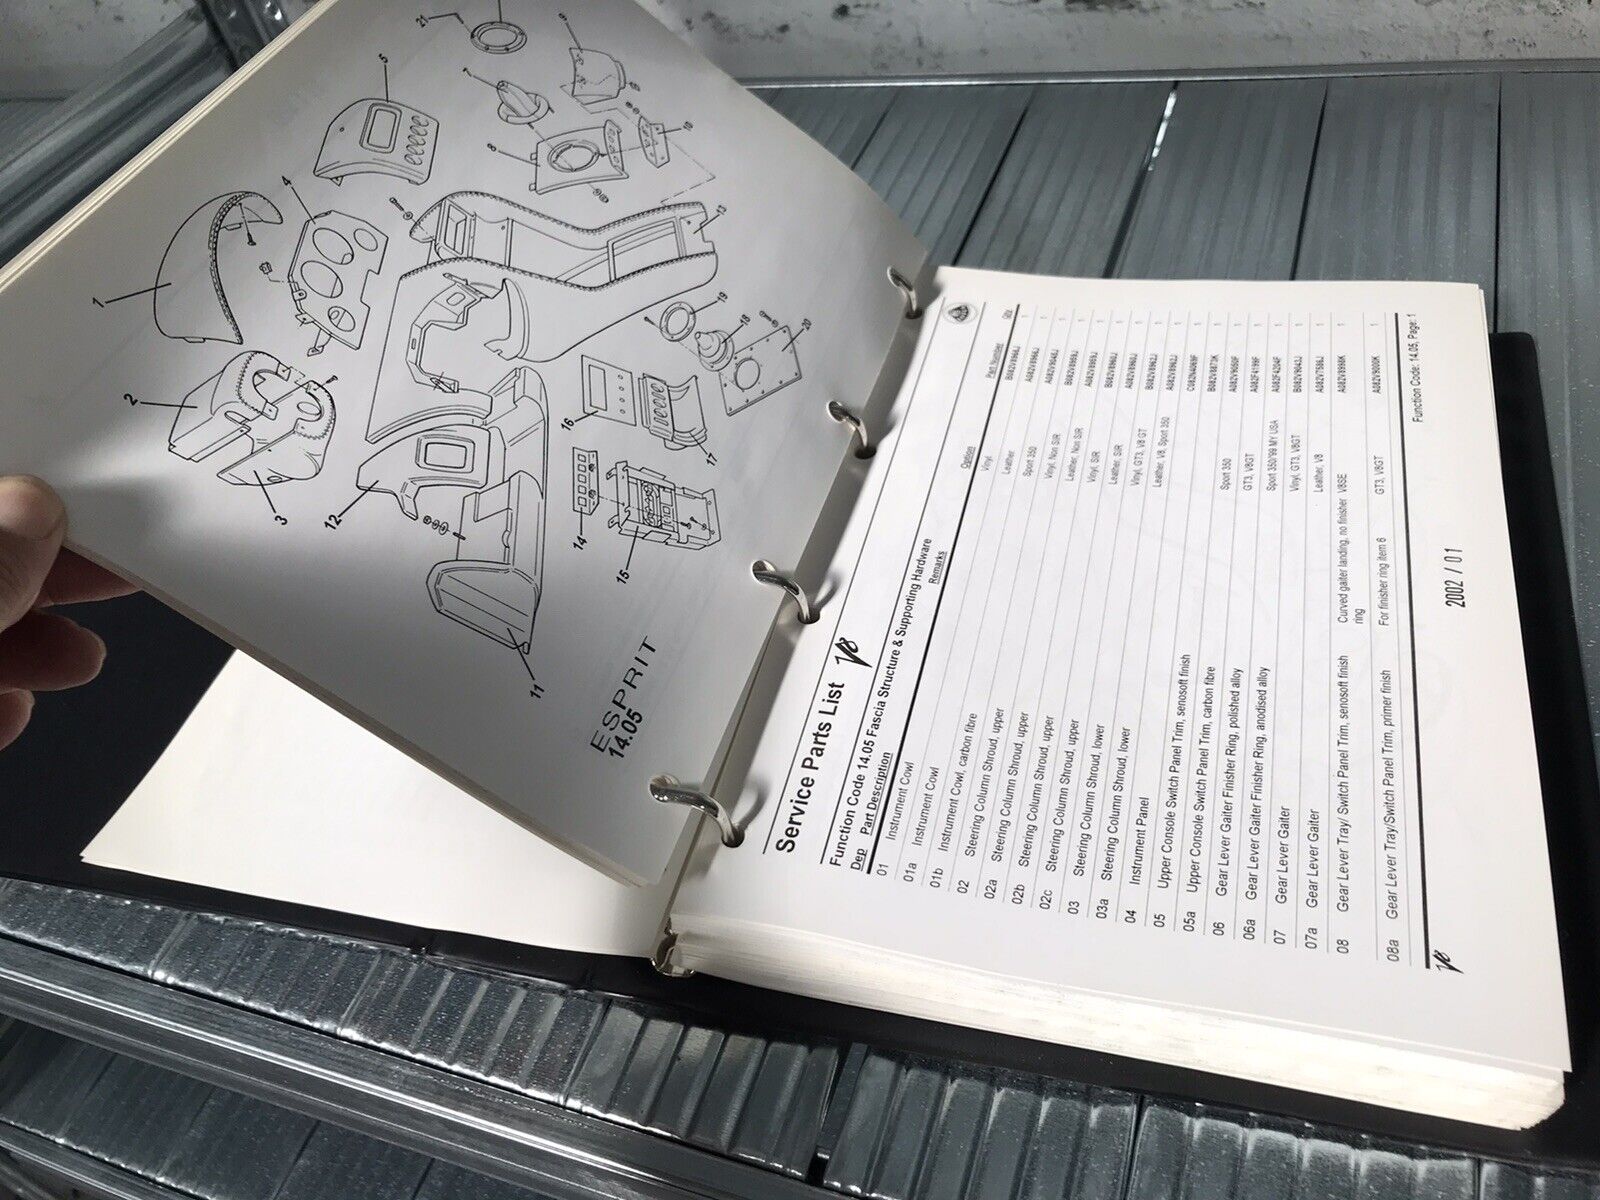 21
9
5
7
10
8
4
1
13
19
18
20
2
16
17
3
12
14
15
11
ESPRIT
14.05
Service Parts List V8
Function Code 14.05 Fascia Structure & Supporting Hardware
Dep Part Description Remarks Option Part Number Qty
01 Instrument Cowl Vinyl 1
01a Instrument Cowl Leather 1
01b Instrument Cowl, carbon fibre Sport 350 A082V9048J 1
02 Steering Column Shroud, upper Vinyl, Non SIR 1
02a Steering Column Shroud, upper Leather, Non SIR 1
02b Steering Column Shroud, upper Vinyl, SIR 1
02c Steering Column Shroud, upper Leather, SIR 1
03 Steering Column Shroud, lower Vinyl, GT3, V8 GT B082V8962J 1
03a Steering Column Shroud, lower Leather, V8, Sport 350 A082V8962J 1
04 Instrument Panel C082N4069F 1
05 Upper Console Switch Panel Trim, senosoft finish B082V8873K 1
05a Upper Console Switch Panel Trim, carbon fibre Sport 350 A082V9050F 1
06 Gear Lever Gaiter Finisher Ring, polished alloy GT3, V8GT A082F4199F 1
06a Gear Lever Gaiter Finisher Ring, anodised alloy Sport 350/'99 MY USA A082F4204F 1
07 Gear Lever Gaiter Vinyl, GT3, V8GT B082V9043J 1
07a Gear Lever Gaiter Leather, V8 A082V7586J 1
08 Gear Lever Tray/ Switch Panel Trim, senosoft finish Curved gaiter landing, no finisher V8SE A082V8998K 1
ring
08a Gear Lever Tray/Switch Panel Trim, primer finish For finisher ring item 6 GT3, V8GT A082V9000K 1
V8 Function Code: 14.05, Page: 1
2002 / 01